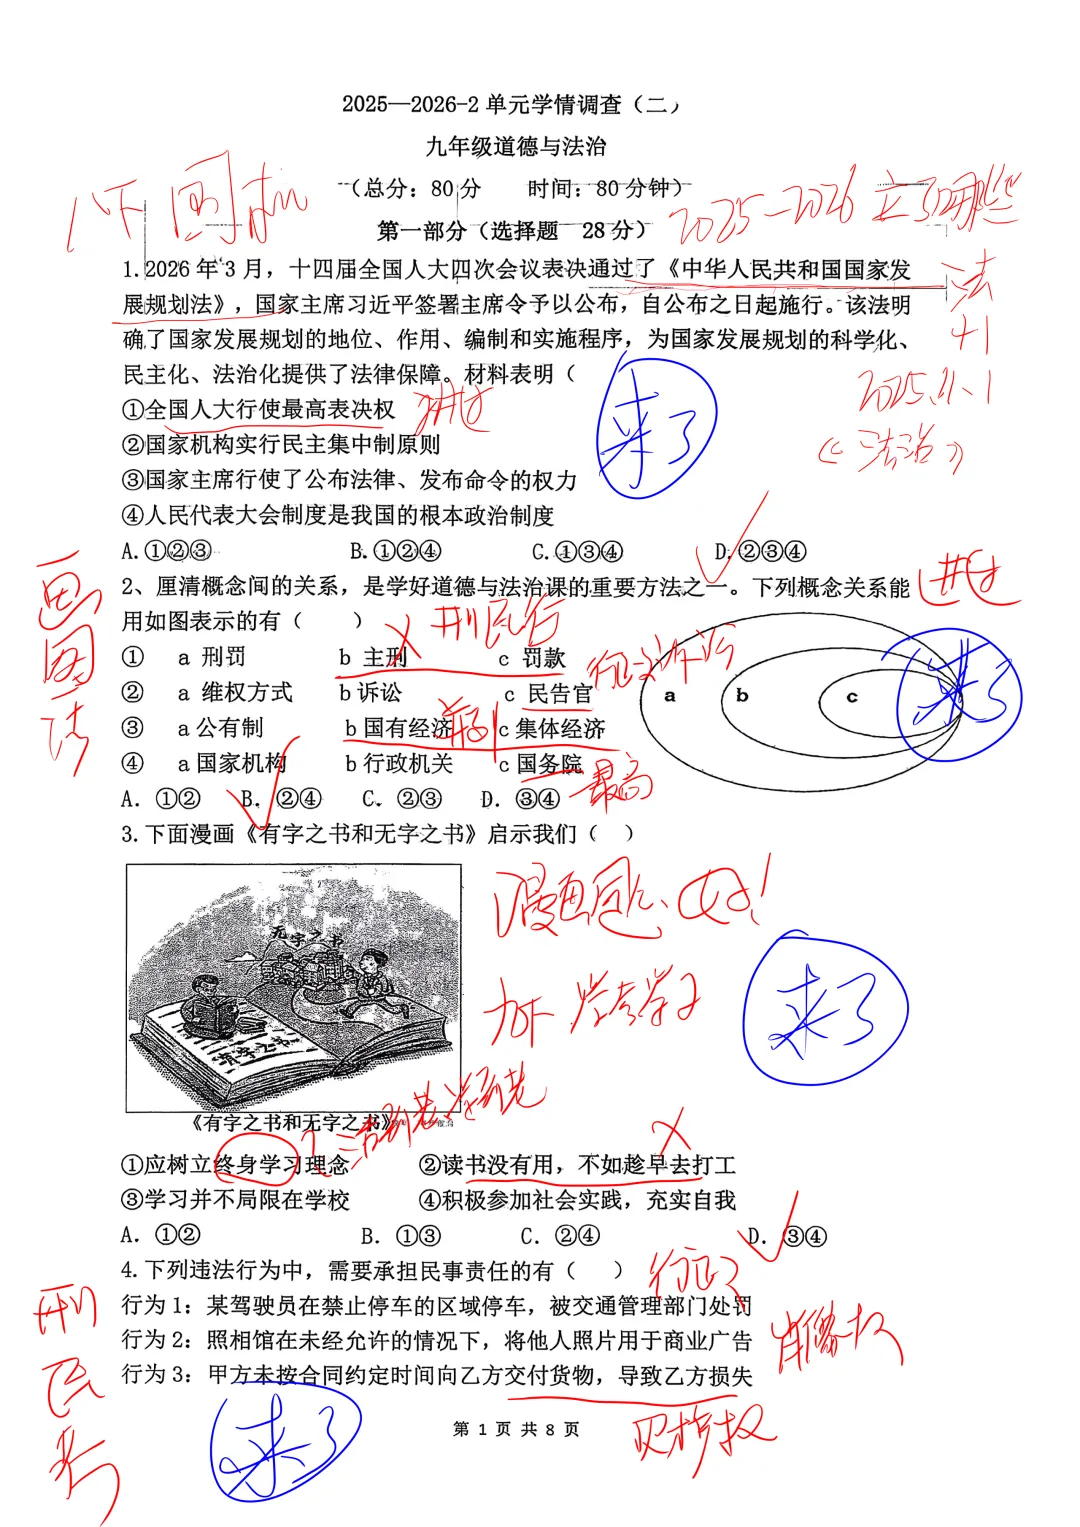 2025—2026-2 单元学情调查（二）
九年级道德与法治
（总分：80分 时间：80分钟）
第一部分（选择题 28分）
八下 国机
2025-2026 立了哪些
法
+1
2025.11.1
《法治》
1.2026年3月，十四届全国人大四次会议表决通过了《中华人民共和国国家发
展规划法》，国家主席习近平签署主席令予以公布，自公布之日起施行。该法明
确了国家发展规划的地位、作用、编制和实施程序，为国家发展规划的科学化、
民主化、法治化提供了法律保障。材料表明（
①全国人大行使最高表决权
讲过
来了
②国家机构实行民主集中制原则
③国家主席行使了公布法律、发布命令的权力
④人民代表大会制度是我国的根本政治制度
A.①②③ B.①②④ C.①③④ D.②③④
2、厘清概念间的关系，是学好道德与法治课的重要方法之一。下列概念关系能
讲过
用如图表示的有（ ）
刑民行
画图法
① a 刑罚 b 主刑 c 罚款
② a 维权方式 b诉讼 c 民告官
行政诉讼
③ a公有制 b国有经济 c集体经济
并列
④ a国家机构 b行政机关 c国务院
最高
a b c
来了
A. ①② B. ②④ C. ②③ D. ③④
3.下面漫画《有字之书和无字之书》启示我们（ ）
无字之书
有字之书
漫画同心、好！
九下 学会学习
来了
《有字之书和无字之书》
活到老学到老
①应树立终身学习理念 ②读书没有用，不如趁早去打工
③学习并不局限在学校 ④积极参加社会实践，充实自我
A. ①② B. ①③ C. ②④ D. ③④
4.下列违法行为中，需要承担民事责任的有（ ）
行政
刑民
行为1：某驾驶员在禁止停车的区域停车，被交通管理部门处罚
行为2：照相馆在未经允许的情况下，将他人照片用于商业广告
肖像权
行为3：甲方未按合同约定时间向乙方交付货物，导致乙方损失
来了
第 1 页 共 8 页